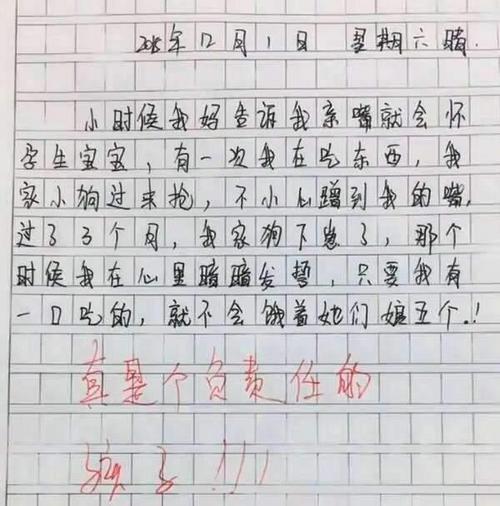 2018年12月1日 星期六 晴.
小时候我妈告诉我亲嘴就会怀
孕生宝宝，有一次我在吃东西，我
家小狗过来抢，不小心蹭到我的嘴.
过了3个月，我家狗下崽了，那个
时候我在心里暗暗发誓，只要我有
一口吃的，就不会饿着她们娘五个.！
真是个负责任的
孩子！！！